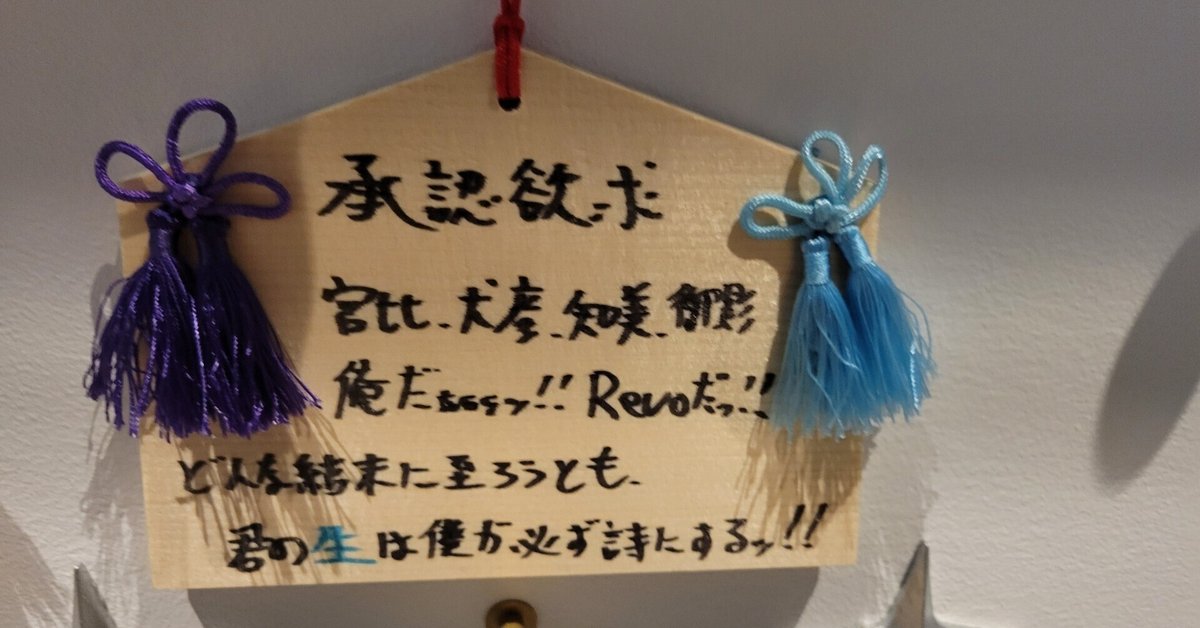 承認欲求
宮比、犬産、知美、御影
俺だぁぁぁッ!! Revoだッ!!
どんな結末に至ろうとも、
君の生は僕が必ず詩にするッ!!